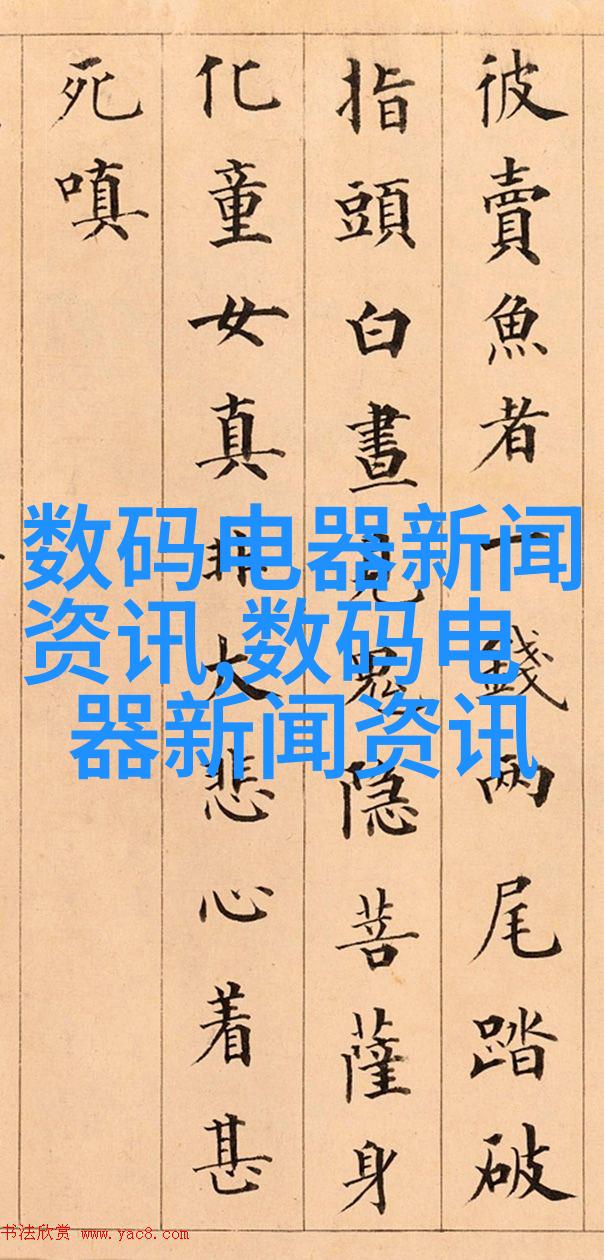 彼賣魚者一錢兩尾踏破
指頭白晝見鬼隐菩薩身
化童女真非大悲心着甚
死嗔
数码电器新闻
资讯,数码电
器新闻资讯
书法欣赏 www.yac8.com